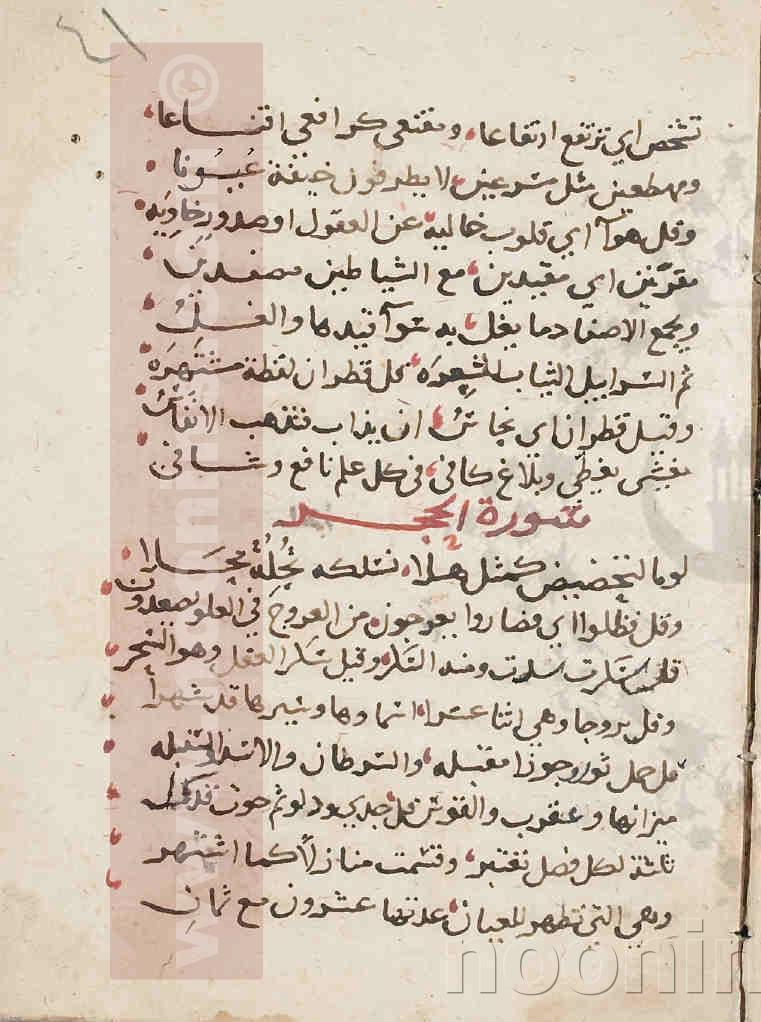 ٤١
تشخص اي ترتفع ارتفاعا، ومقنعي كرافعي اقناعا
ومهطعين مثل مسرعين، لا يطرفون خيفة عيونا
وقل هوآ اي قلوب خاليه، عن العقول او صدور خاويه
مقرنين اي مقيدين، مع الشياطين مصفدين
ويجمع الاصفاد ما يغل، به سوآ قيدها والغل
ثم السرابيل الثياب المشعره، كل قطران لفظة مشتهره
وقيل قطران اي نحاس، ان يذاب فتذهب الانفاس
يغشى يغطي وبلاغ كافي، في كل علم نافع وشافي
سورة الحجر
لوما لتخضيض كمثل هلا، نسلكه
وقل فظلوا اي فصاروا يعرجون، من العروج في العلو يصعدون
سكرت سدت ومنه السكر، وقيل سكر العقل وهو
وقل بروجا وهي اثنا عشرا، اسماوها وسيرها قد شهرا
حمل ثور وجوزا مقبله، والسرطان والاسد
ميزانها وعقرب والقوس جدي ودلو ثم حوت
ثلثة لكل فصل تعتبر، وقسمت منازلا كما اشتهر
وهي التي تظهر للعيان، عدتها عشرون مع ثمان
www.
©
noonin